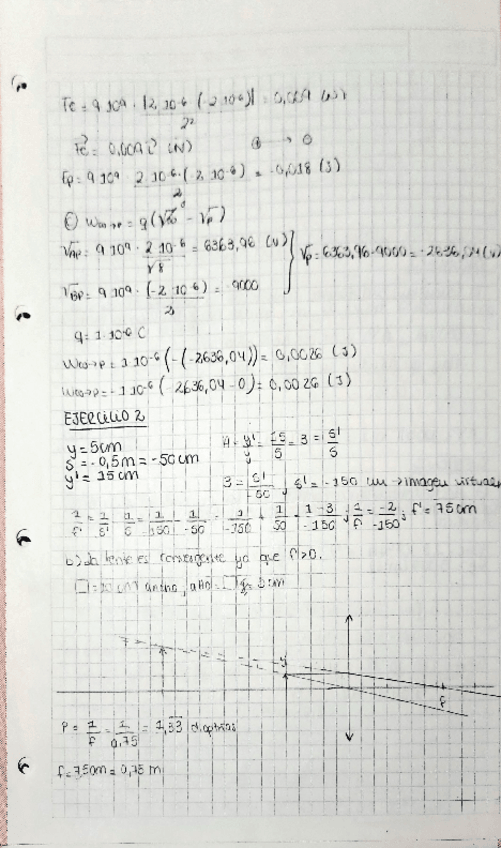 Fe = 9·10⁹ · |2·10⁻⁶·(-2·10⁻⁶)| / 2² = 0,009 (N)
Fe = 0,009 i (N) ⊕ → ⊖
Ep = 9·10⁹ · 2·10⁻⁶·(-2·10⁻⁶) / 2 = -0,018 (J)
W∞→p = q(V∞⁰ - Vp)
VAP = 9·10⁹ · 2·10⁻⁶ / √8 = 6363,96 (V) } Vp = 6363,96 - 9000 = -2636,04 (V)
VBP = 9·10⁹ · (-2·10⁻⁶) / 2 = -9000
q = 1·10⁻⁶ C
W∞→p = 1·10⁻⁶ (-(-2636,04)) = 0,0026 (J)
W∞→p = -1·10⁻⁶ (-2636,04 - 0) = 0,0026 (J)
EJERCICIO 2
y = 5cm A = y'/y = 15/5 = 3 = s'/s
s = -0,5m = -50cm
y' = 15cm
3 = s'/-50 ; s' = -150 cm → imagen virtual
1/f' = 1/s' - 1/s = 1/-150 - 1/-50 = 1/-150 + 1/50 = 1-3/-150 ; 1/f' = -2/-150 ; f' = 75cm
b) La lente es convergente ya que f'>0.
y
F
P = 1/f' = 1/0,75 = 1,33 dioptrías
f = 75cm = 0,75 m